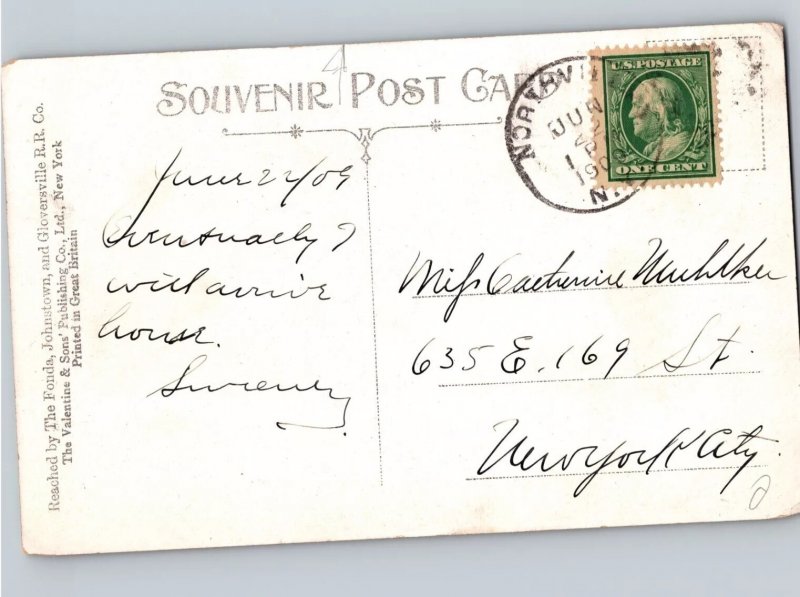 SOUVENIR POST CARD
Reached by The Fonda, Johnstown, and Gloversville R.R. Co.
The Valentine & Sons' Publishing Co., Ltd., New York
Printed in Great Britain
4
NORTHVIL
JUN
22
1 P
1909
N.Y.
U.S. POSTAGE
ONE CENT
June 22/09
Eventually I
will arrive
house.
Sweeney
Miss Catherine
635 E. 169 St.
New York City